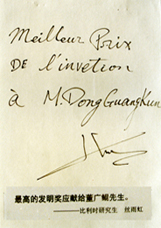 Meilleur Prix
DE l'invetion
à M. Dong Guang Kun
最高的发明奖应献给董广鲲先生。
——比利时研究生